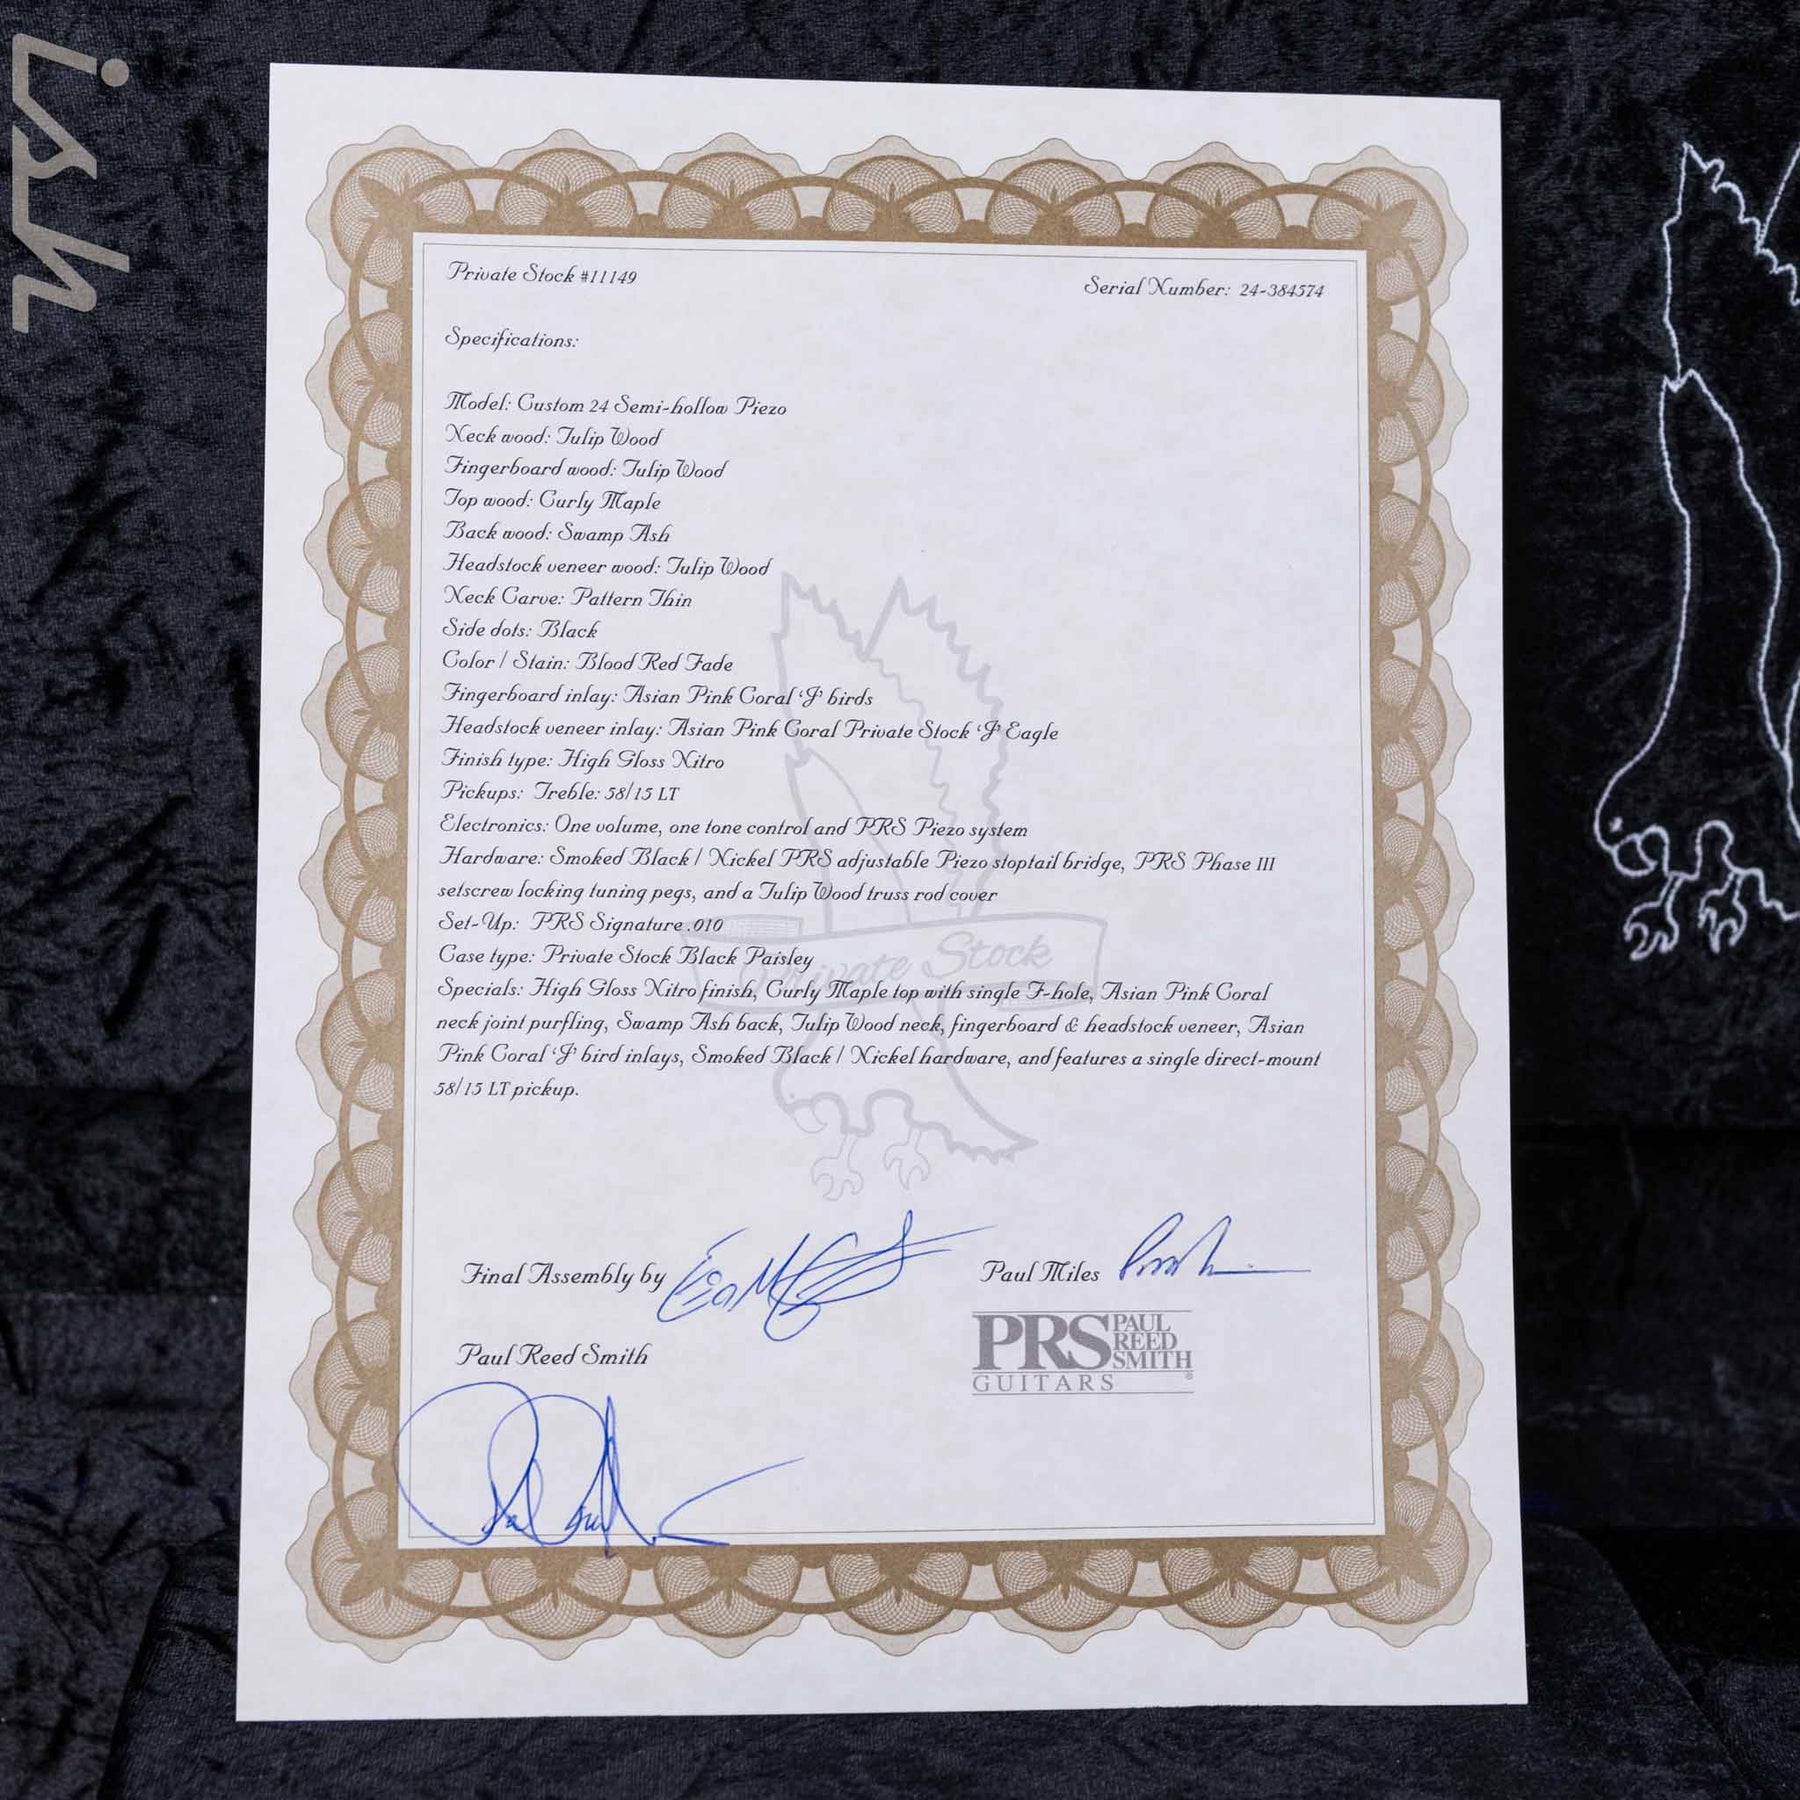 ish
Private Stock #11149
Serial Number: 24-384574
Specifications:
Model: Custom 24 Semi-hollow Piezo
Neck wood: Tulip Wood
Fingerboard wood: Tulip Wood
Top wood: Curly Maple
Back wood: Swamp Ash
Headstock veneer wood: Tulip Wood
Neck Carve: Pattern Thin
Side dots: Black
Color / Stain: Blood Red Fade
Fingerboard inlay: Asian Pink Coral ‘J’ birds
Headstock veneer inlay: Asian Pink Coral Private Stock ‘J’ Eagle
Finish type: High Gloss Nitro
Pickups: Treble: 58/15 LT
Electronics: One volume, one tone control and PRS Piezo system
Hardware: Smoked Black / Nickel PRS adjustable Piezo stoptail bridge, PRS Phase III
setscrew locking tuning pegs, and a Tulip Wood truss rod cover
Set-Up: PRS Signature .010
Case type: Private Stock Black Paisley
Specials: High Gloss Nitro finish, Curly Maple top with single F-hole, Asian Pink Coral
neck joint purfling, Swamp Ash back, Tulip Wood neck, fingerboard & headstock veneer, Asian
Pink Coral ‘J’ bird inlays, Smoked Black / Nickel hardware, and features a single direct-mount
58/15 LT pickup.
Private Stock
Final Assembly by
Paul Miles
Paul Reed Smith
PRS PAUL
REED
SMITH
GUITARS